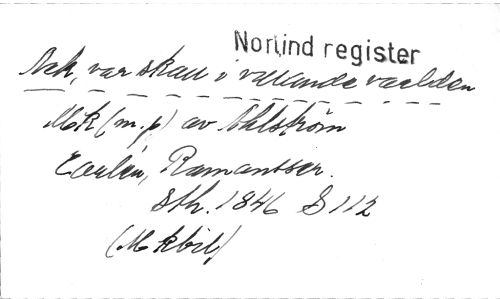 Norlind register
Ack, var skall i villande världen
Mk (m. p) av Ahlström
Carlén, Romanser.
Sth. 1846 S 112
(Mkbil)